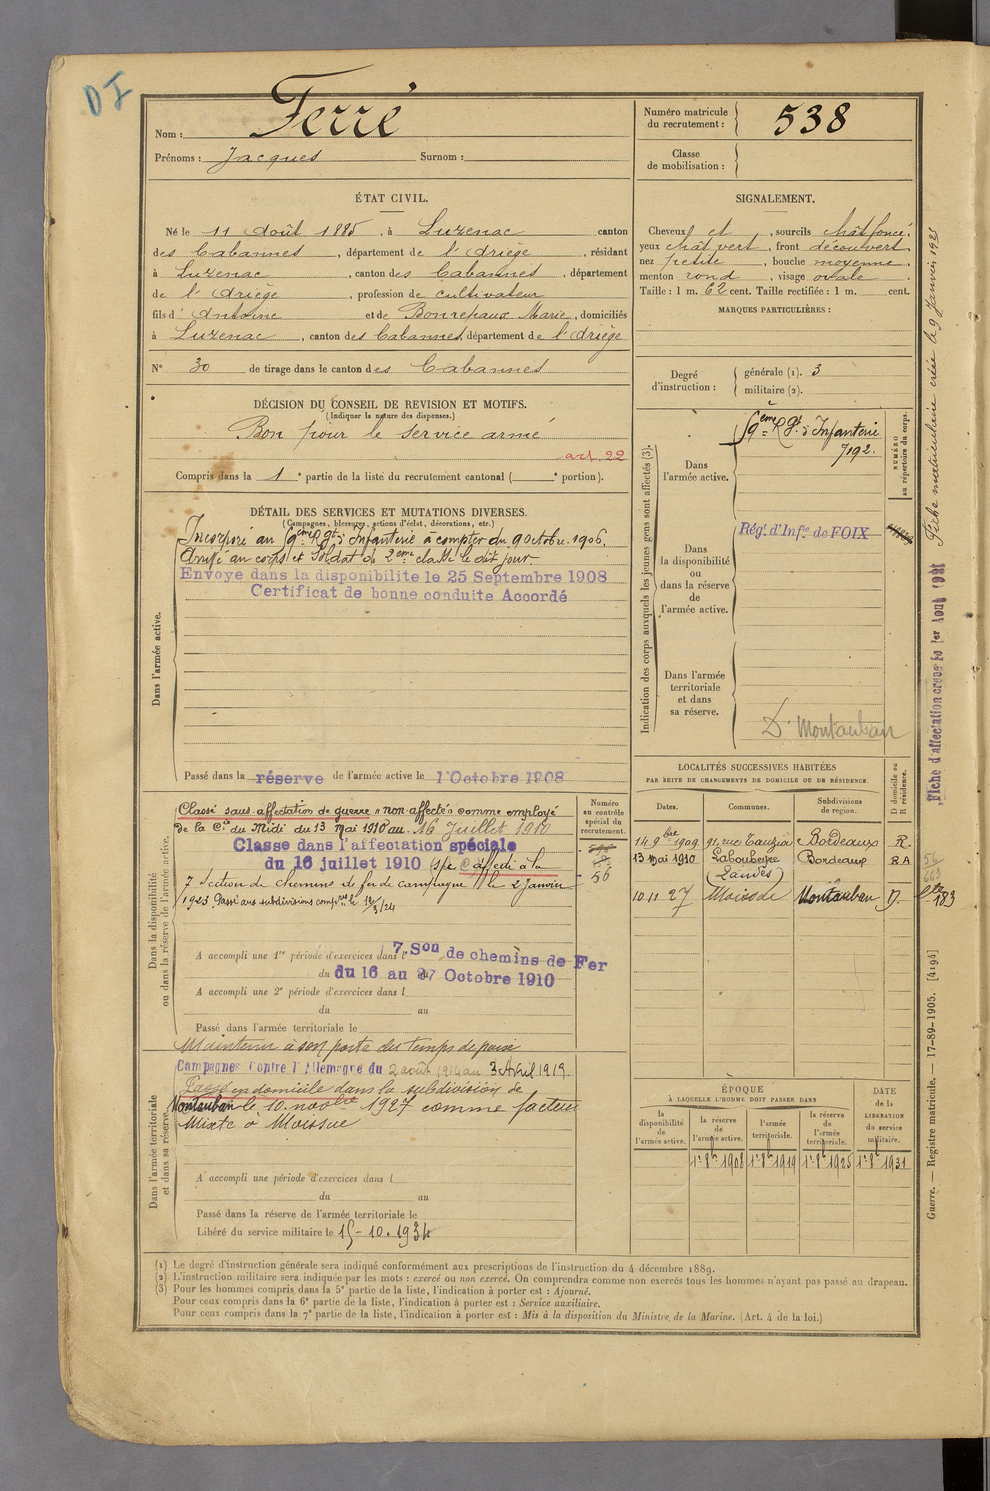 DI
Nom : Ferré
Prénoms : Jacques Surnom :
Numéro matricule du recrutement : 538
Classe de mobilisation :
ÉTAT CIVIL.
Né le 11 Août 1885, à Luzenac canton
des Cabannes, département de l'Ariège, résidant
à Luzenac, canton des Cabannes, département
de l'Ariège, profession de cultivateur
fils d'Antoine et de Bonrepaux Marie, domiciliés
à Luzenac, canton des Cabannes, département de l'Ariège
N° 30 de tirage dans le canton des Cabannes
SIGNALEMENT.
Cheveux et, sourcils chât foncé,
yeux chât vert, front découvert
nez petite, bouche moyenne,
menton rond, visage ovale.
Taille : 1 m. 62 cent. Taille rectifiée : 1 m. cent.
MARQUES PARTICULIÈRES :
Degré d'instruction : générale (1). 3
militaire (2).
DÉCISION DU CONSEIL DE REVISION ET MOTIFS.
(Indiquer la nature des dispenses.)
Bon pour le service armé
art 22
Compris dans la 1e partie de la liste du recrutement cantonal ( e portion).
DÉTAIL DES SERVICES ET MUTATIONS DIVERSES.
(Campagnes, blessures, actions d'éclat, décorations, etc.)
Dans l'armée active.
Incorporé au 59ème Rgt d'Infanterie à compter du 9 octobre 1906.
Arrivé au corps et Soldat de 2eme classe le dit jour.
Envoye dans la disponibilite le 25 Septembre 1908
Certificat de bonne conduite Accordé
Passé dans la réserve de l'armée active le 1 Octobre 1908
Indication des corps auxquels les jeunes gens sont affectés (3).
NUMÉRO au répertoire du corps.
Dans l'armée active.
59ème Rgt d'Infanterie
7192.
Dans la disponibilité ou dans la réserve de l'armée active.
Régt. d'Infie de FOIX
Dans l'armée territoriale et dans sa réserve.
D. Montauban
Dans la disponibilité ou dans la réserve de l'armée active.
Numéro au contrôle spécial du recrutement.
Classé sans affectation de guerre « non affecté » comme employé
de la Cie du Midi du 13 Mai 1910 au 16 Juillet 1910
Classe dans l'affectation spéciale
du 16 juillet 1910
7 Section de chemins de fer de campagne le 2 Janvier
1923
56
A accompli une 1re période d'exercices dans l 7. Son de chemins de Fer
du 16 au 27 Octobre 1910
A accompli une 2e période d'exercices dans l
du au
Passé dans l'armée territoriale le
Maintenu à son poste du temps de paix
Dans l'armée territoriale et dans sa réserve.
Campagnes Contre l'Allemagne du 2 août 1914 au 3 Avril 1919.
Passé en domicile dans la subdivision de
Montauban le 10 novbre 1927 comme facteur
Mixte à Moissac
A accompli une période d'exercices dans l
du au
Passé dans la réserve de l'armée territoriale le
Libéré du service militaire le 15-10.1934
LOCALITÉS SUCCESSIVES HABITÉES
PAR SUITE DE CHANGEMENTS DE DOMICILE OU DE RÉSIDENCE.
Dates. Communes. Subdivisions de région. D domicile ou R résidence.
14 9bre 1909 91, rue Tauzia Bordeaux R.
13 Mai 1910 Labouheyre (Landes) Bordeaux RA
10 11 27 Moissac Montauban D.
183
ÉPOQUE
À LAQUELLE L'HOMME DOIT PASSER DANS
DATE de la LIBÉRATION du service militaire.
la disponibilité de l'armée active.
la réserve de l'armée active.
l'armée territoriale.
la réserve de l'armée territoriale.
1er 8bre 1908 1er 8bre 1919 1er 8bre 1925 1er 8bre 1931
(1) Le degré d'instruction générale sera indiqué conformément aux prescriptions de l'instruction du 4 décembre 1889.
(2) L'instruction militaire sera indiquée par les mots : exercé ou non exercé. On comprendra comme non exercés tous les hommes n'ayant pas passé au drapeau.
(3) Pour les hommes compris dans la 5e partie de la liste, l'indication à porter est : Ajourné.
Pour ceux compris dans la 6e partie de la liste, l'indication à porter est : Service auxiliaire.
Pour ceux compris dans la 7e partie de la liste, l'indication à porter est : Mis à la disposition du Ministre de la Marine. (Art. 4 de la loi.)
Fiche matriculaire créée le 9 Janvier 1925
Fiche d'affectation creee le 1er Aout 1921
Guerre. — Registre matricule. — 17-89-1905. [4194]